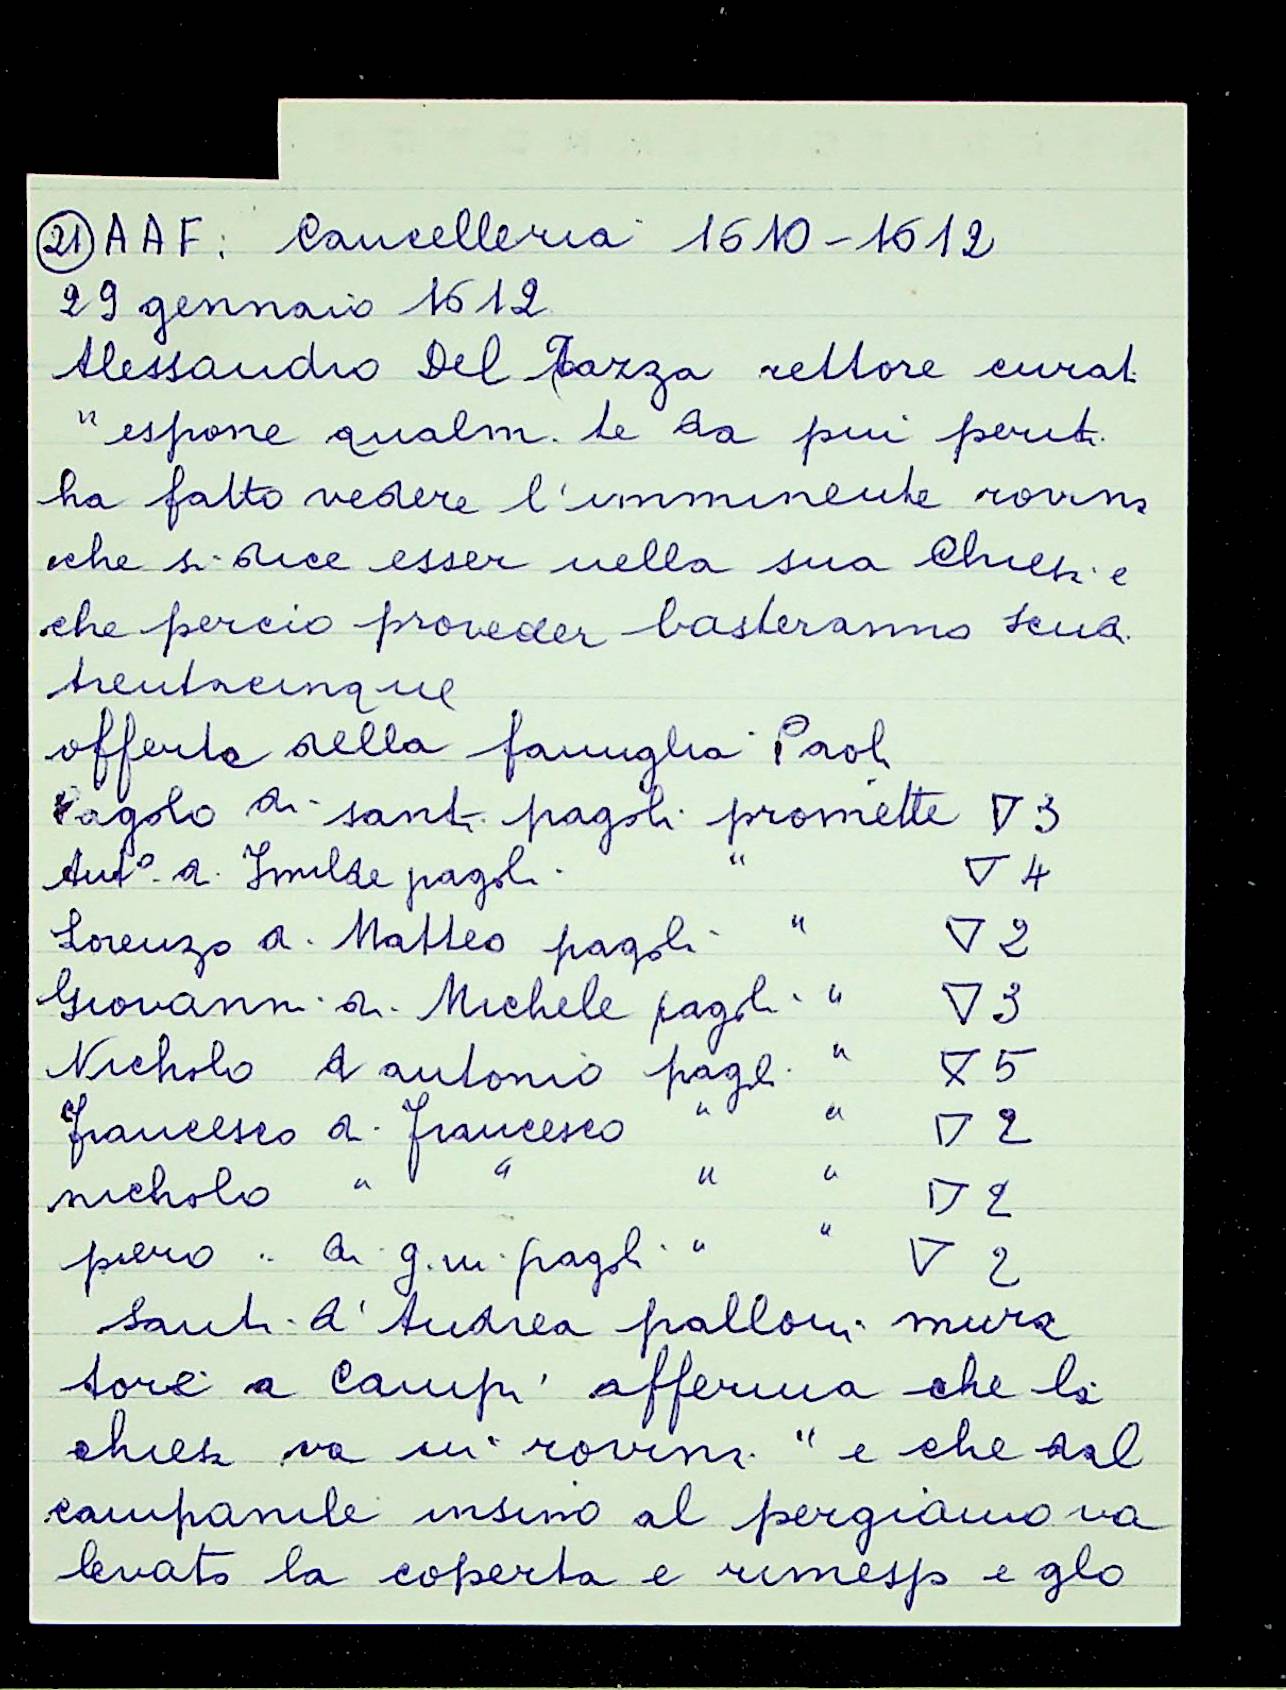 21 AAF: Cancelleria 1610-1612
29 gennaio 1612
Alessandro Del Tazza rettore curat.
"espone qualm. te da più perit.
ha fatto vedere l'imminente rovina
che si dice esser nella sua Chiesa e
che percio proveder basteranno scud.
trentacinque
offerte della famiglia Paoli
Pagolo di santi pagoli promette ▽ 3
Ant° d. pagoli " ▽ 4
Lorenzo d. Matteo pagoli " ▽ 2
Giovanni di Michele pagoli " ▽ 3
Nicholo d antonio pagl. " ▽ 5
Francesco d. Francesco " " ▽ 2
nicholo " " " " ▽ 2
piero " di g.m. pagoli " " ▽ 2
Santi d'Andrea palloni mura
tore a Campi afferma che la
chiesa va in rovina "e che dal
campanile insino al pergiamo va
levato la coperta e rimesso e glo